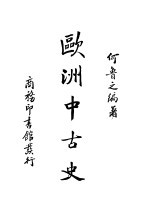 何魯之編著
歐洲中古史
商務印書館發行